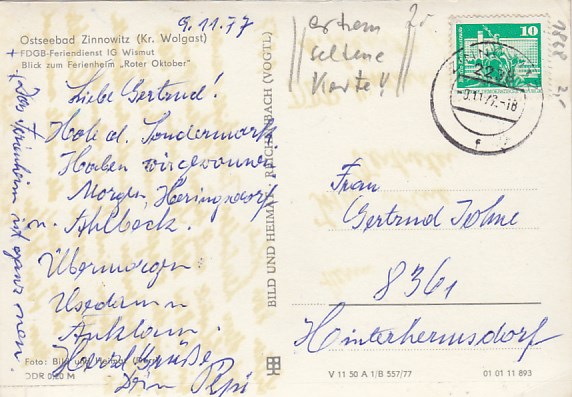 9.11.77
Ostseebad Zinnowitz (Kr. Wolgast)
FDGB-Feriendienst IG Wismut
Blick zum Ferienheim „Roter Oktober"
Liebe Gertrud!
Hole d. Sondermark
Haben wir gewonnen
Morgen Heringsdorf
u. Ahlbeck.
Übermorgen:
Usedom n
Anklam.
Herzl. Grüße
Dein Pepi
+ Das Ferienheim ist ganz neu.
Foto: Bild und Heimat
DDR 0,20 M
BILD UND HEIMAT REICHENBACH (VOGTL)
extrem
seltene
Karte!!
2,-
10
9.11.77-18
f
1868
2,-
Frau
Gertrud Johne
8361
Hinterhermsdorf
V 11 50 A 1/B 557/77
01 01 11 893